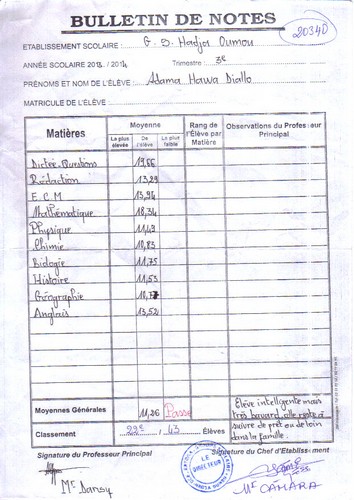 BULLETIN DE NOTES
20340
ETABLISSEMENT SCOLAIRE : G. S. Hadja Oumou
ANNÉE SCOLAIRE 2013 / 2014 Trimestre : 3e
PRÉNOMS ET NOM DE L'ÉLÈVE : Adama Hawa Diallo
MATRICULE DE L'ÉLÈVE
Matières Moyenne Rang de l'Élève par Matière Observations du Professeur Principal
La plus élevée De l'élève La plus faible
Dictée-Questions 19,66
Rédaction 13,29
E.C.M 13,96
Mathématique 18,34
Physique 11,49
Chimie 10,83
Biologie 11,75
Histoire 11,53
Géographie 10,77
Anglais 13,52
Moyennes Générales 11,26 Passe
Elève intelligente mais
très bavard, elle reste à
suivre de prêt ou de loin
dans la famille.
Classement 22e / 43 Élèves
Signature du Professeur Principal Signature du Chef d'Établissement
LE DIRECTEUR
Mr Dansy
Mr CAMARA